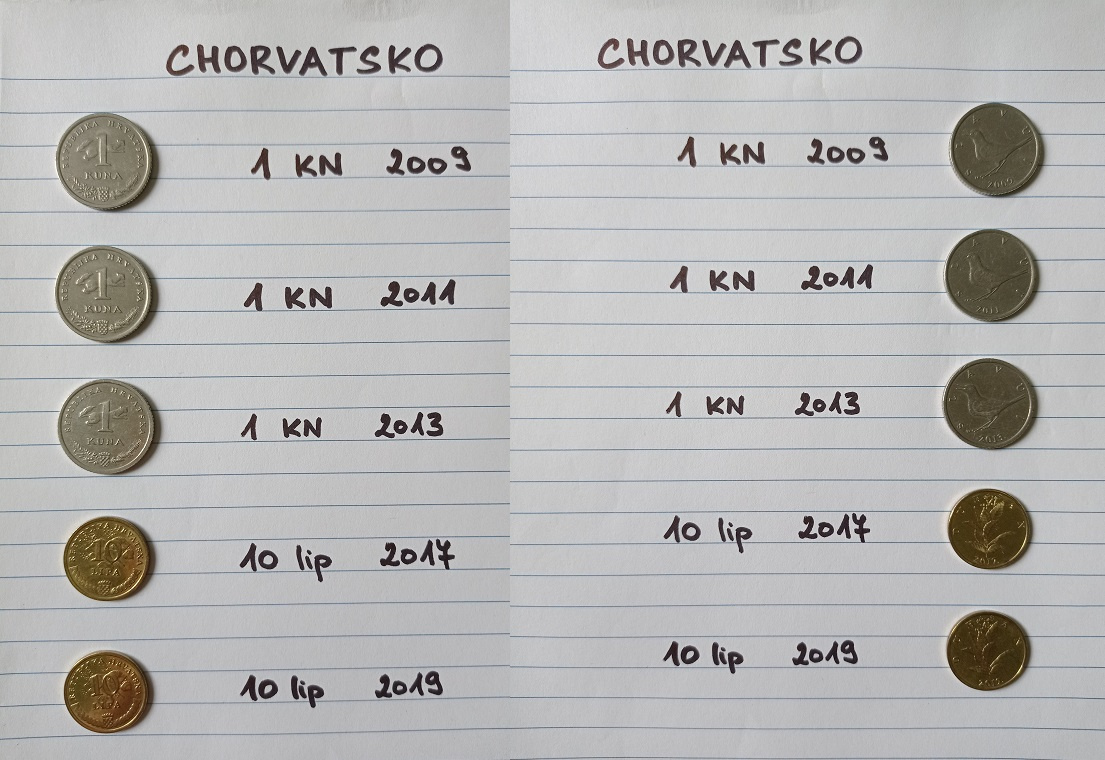 CHORVATSKO
REPUBLIKA HRVATSKA
1
KUNA
1 KN 2009
REPUBLIKA HRVATSKA
1
KUNA
1 KN 2011
REPUBLIKA HRVATSKA
1
KUNA
1 KN 2013
REPUBLIKA HRVATSKA
10
LIPA
10 lip 2017
REPUBLIKA HRVATSKA
10
LIPA
10 lip 2019
CHORVATSKO
1 KN 2009
2009
1 KN 2011
2011
1 KN 2013
2013
10 lip 2017
2017.
10 lip 2019